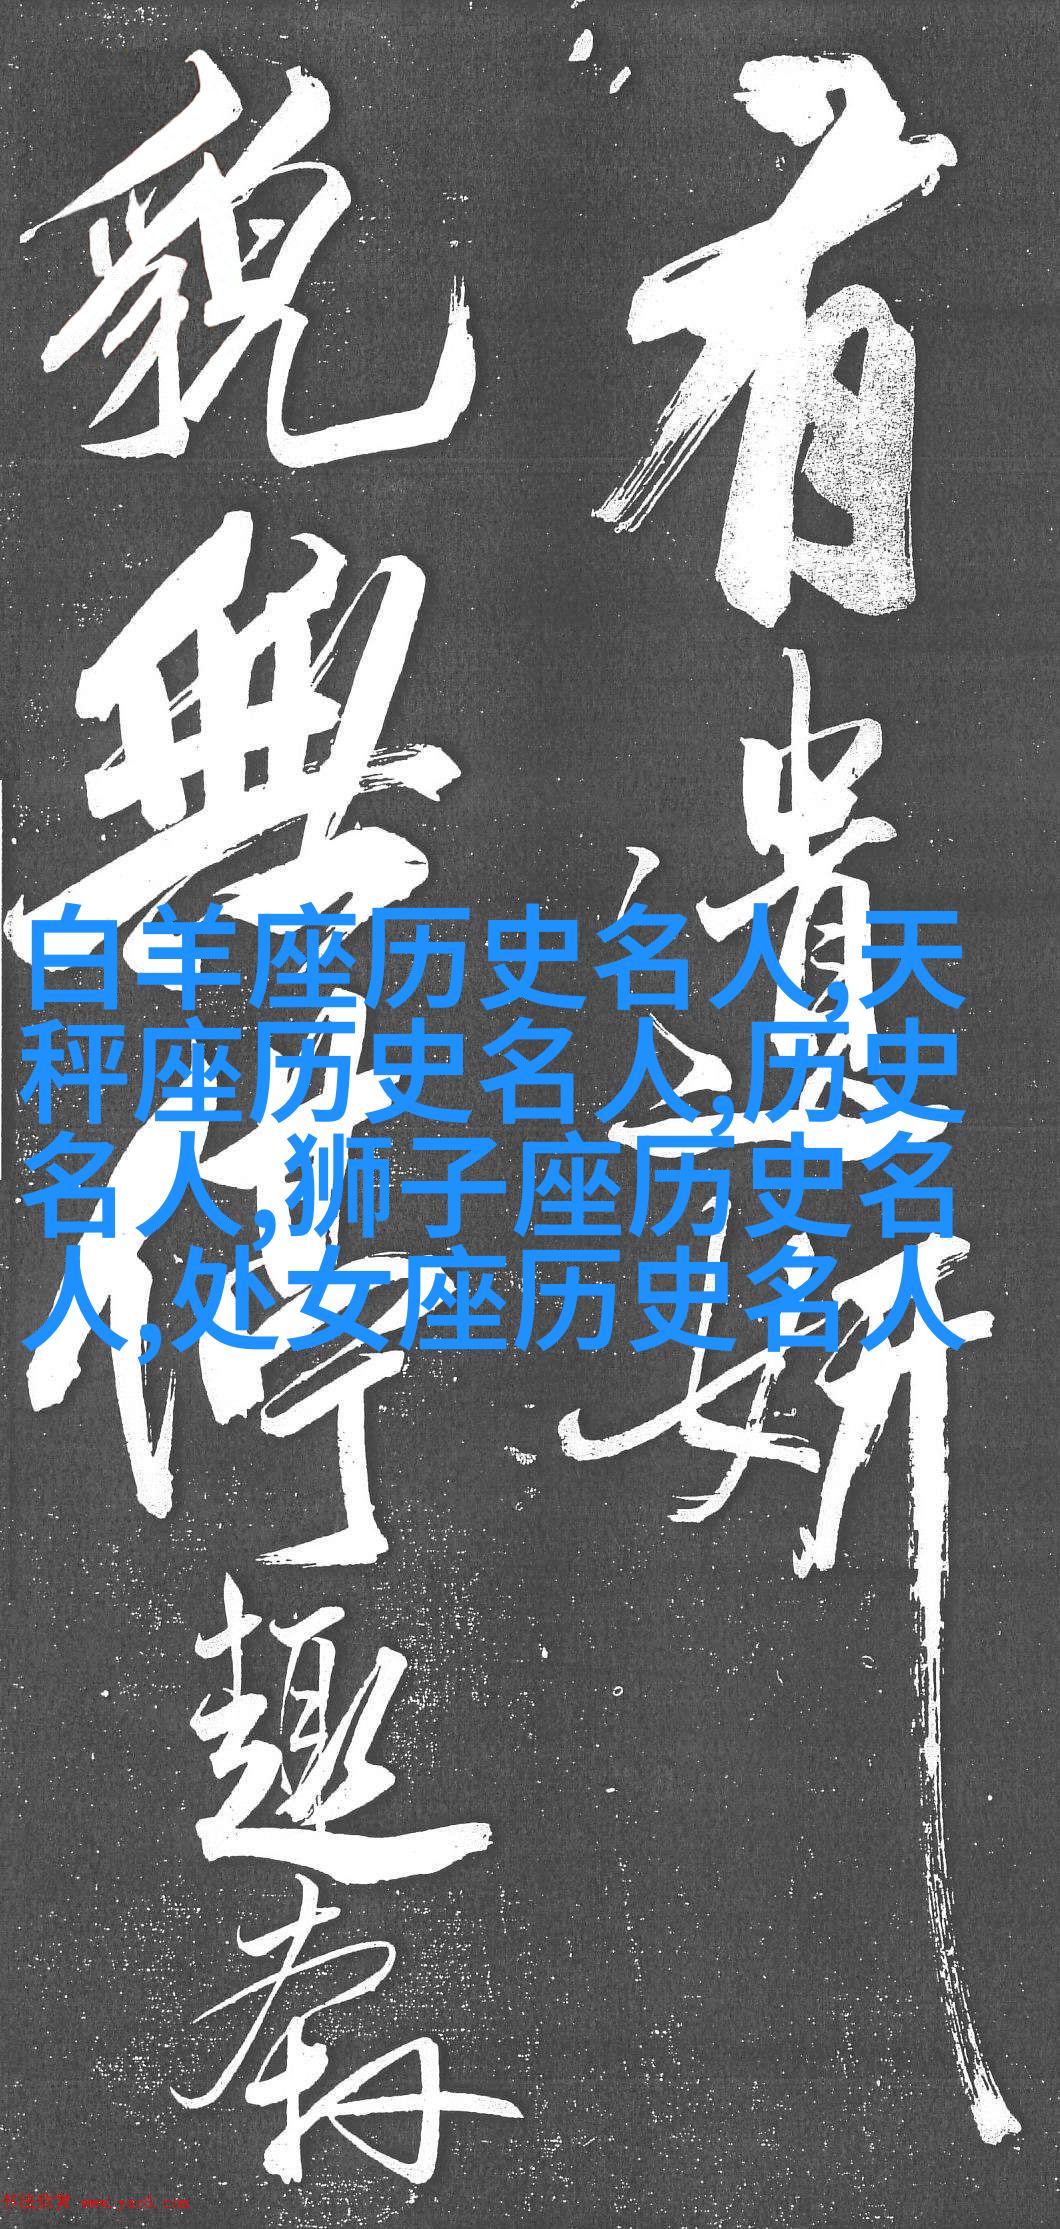 有遺妍
貌無停趣
白羊座历史名人,天
秤座历史名人,历史
名人,狮子座历史名
人,处女座历史名人
书法欣赏 www.yac8.com